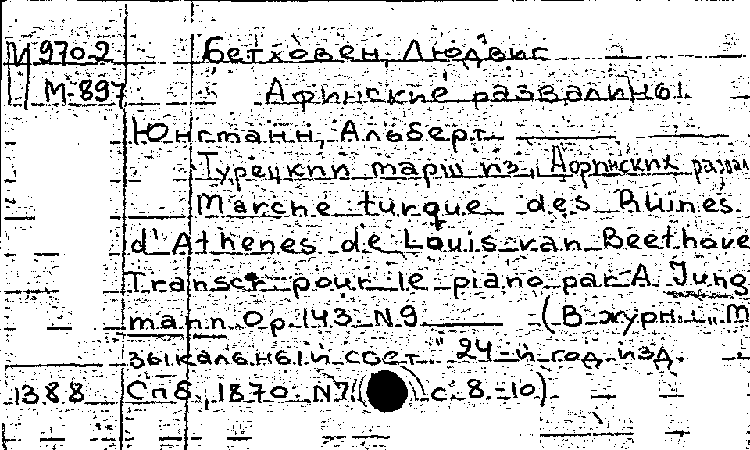 И 9702 Бетховен, Людвиг
М-897 Афинские развалины.
Юнгманн, Альберт
Турецкий марш из „Афинских развал
Marche turque des Ruines
d'Athenes de Louis van Beethove
Transcr pour le piano par A. Jung
mann Op. 143 N 9 (В журн.: „М
зыкальный свет" 24-й год изд.
1388 Спб., 1870 N7 с. 8-10)